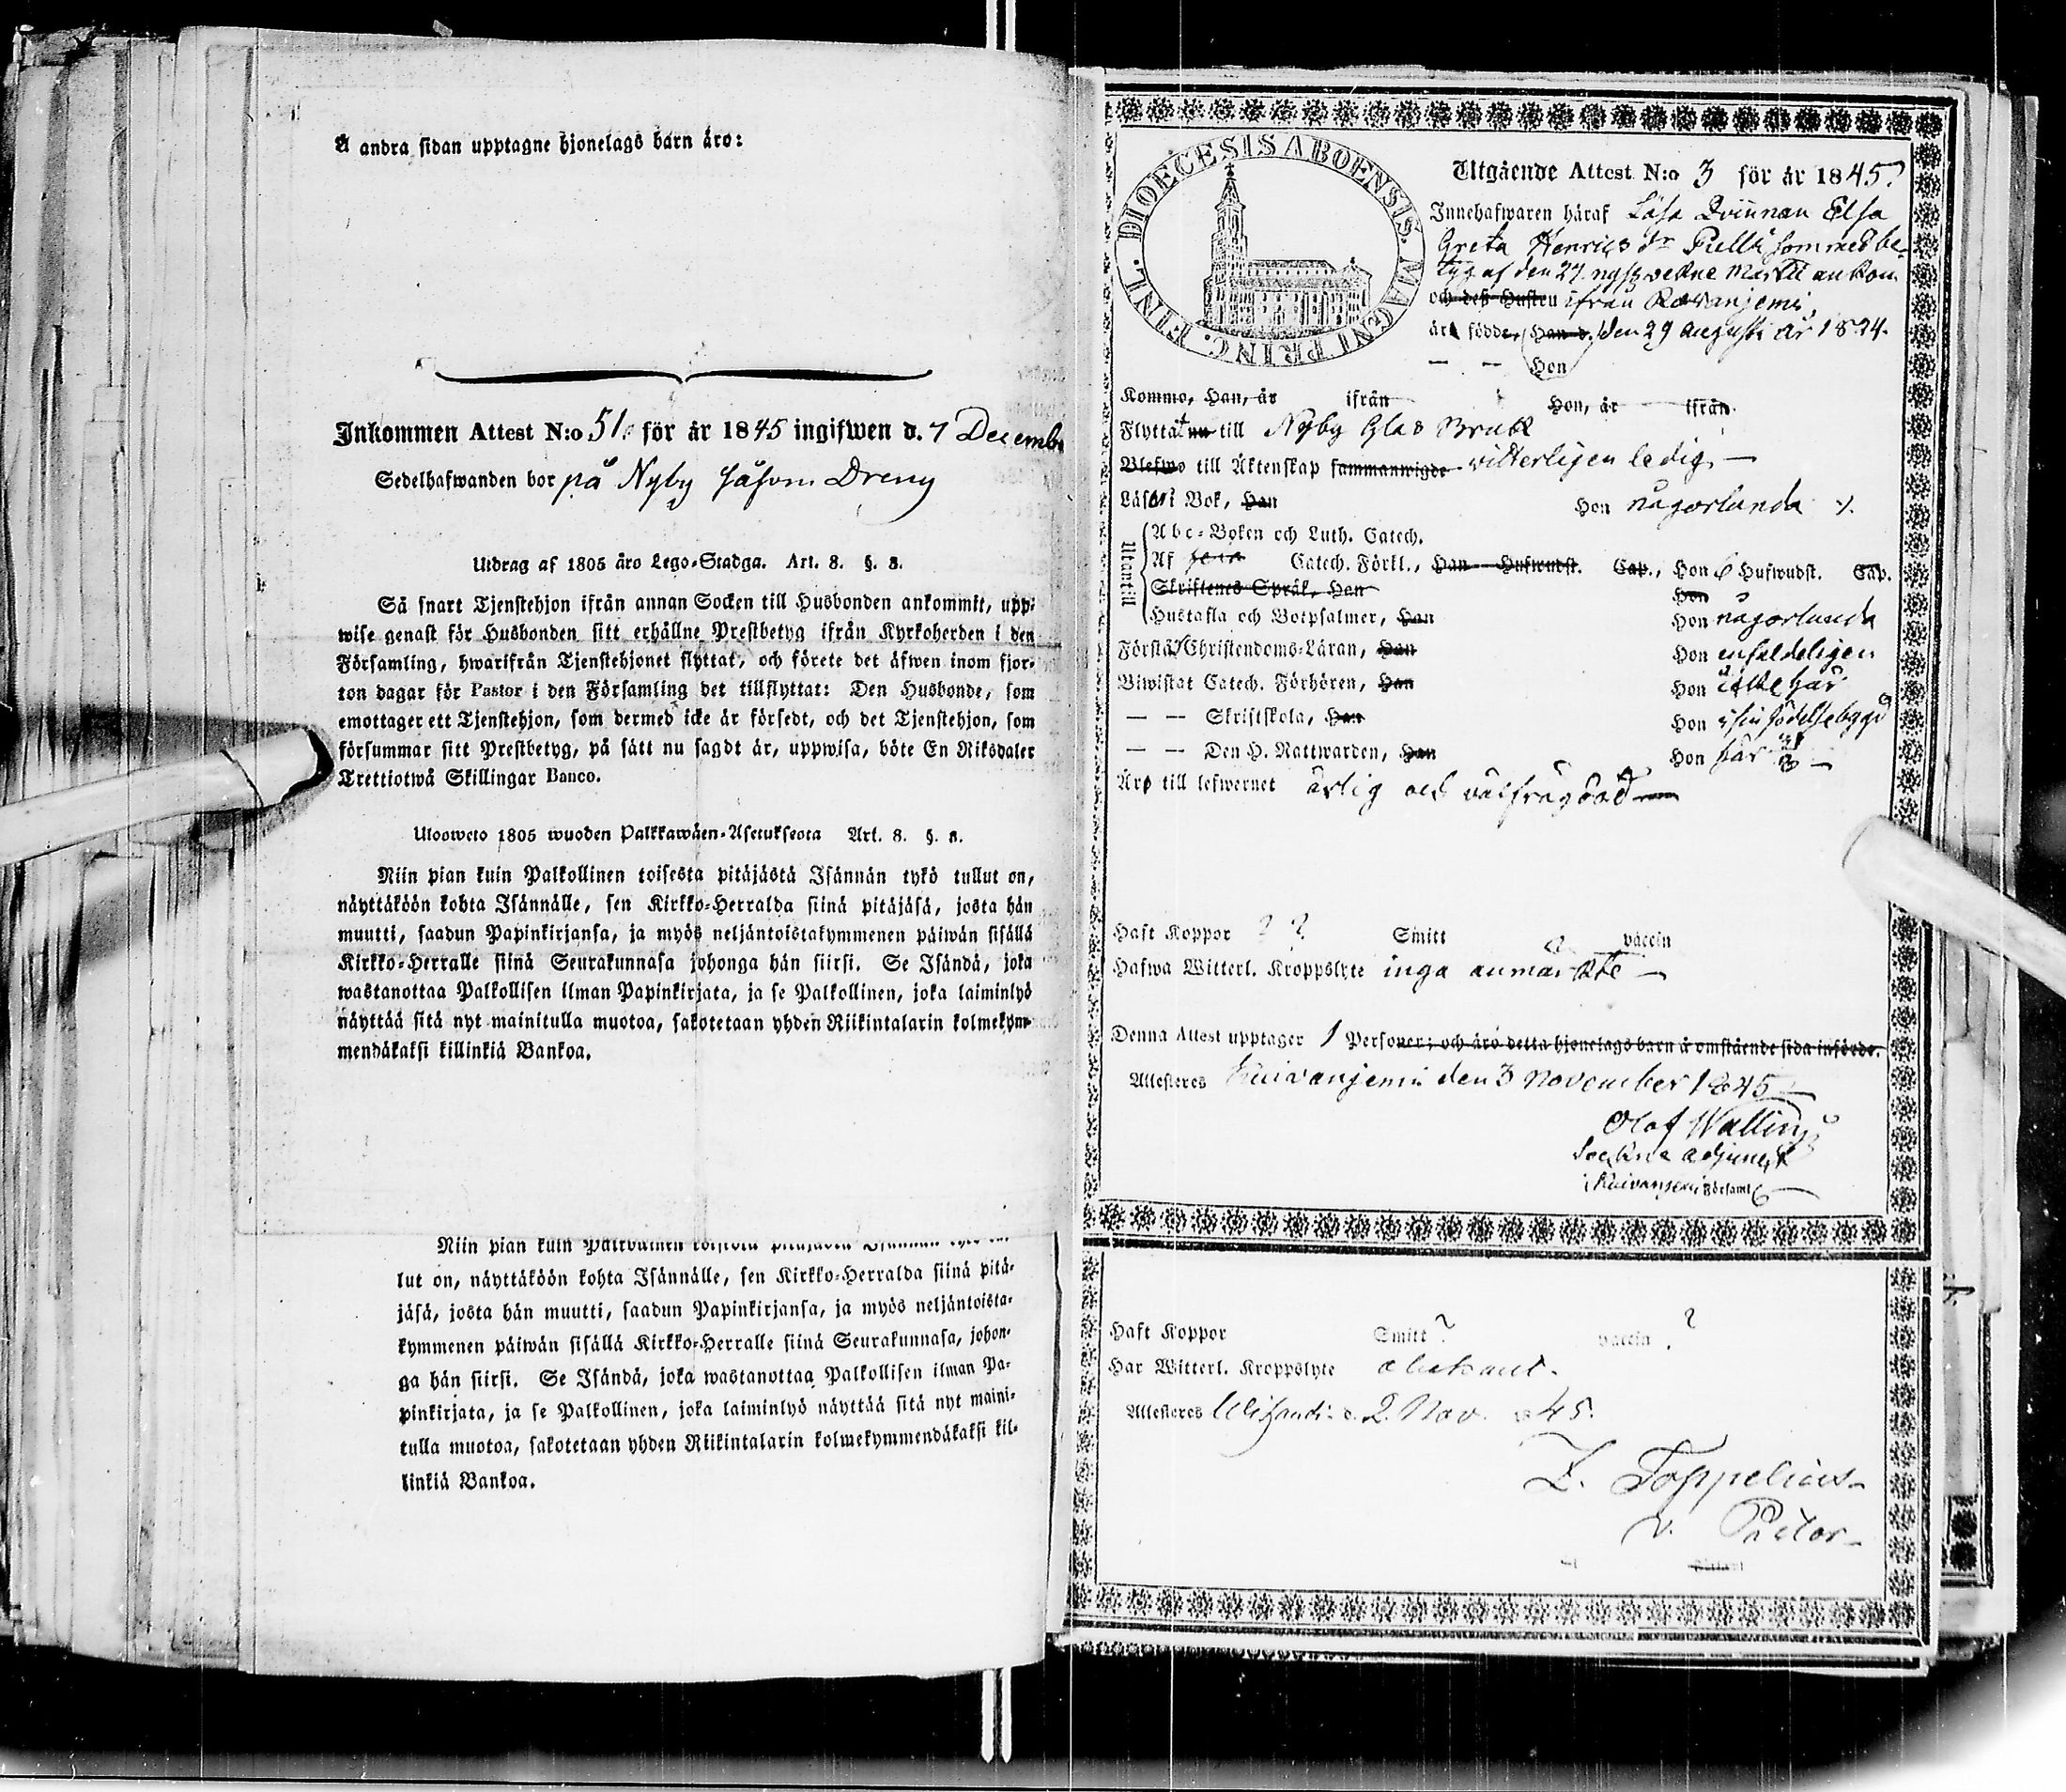 Å andra sidan upptagne hjonelags barn äro:
Inkommen Attest N:o 51. för år 1845 ingifwen d. 7 Decemb
Sedelhafwanden bor på Nyby såsom Dreng
Utdrag af 1805 års Lego-Stadga. Art. 8. §. 2.
Så snart Tjenstehjon ifrån annan Socken till Husbonden ankommit, upp-
wise genast för Husbonden sitt erhållne Prestbetyg ifrån Kyrkoherden i den
Församling, hwarifrån Tjenstehjonet flyttat, och förete det äfwen inom fjor-
ton dagar för Pastor i den Församling det tillflyttat: Den Husbonde, som
emottager ett Tjenstehjon, som dermed icke är försedt, och det Tjenstehjon, som
försummar sitt Prestbetyg, på sätt nu sagdt är, uppwisa, böte En Riksdaler
Trettiotwå Skillingar Banco.
Ulosweto 1805 wuoden Palkkawäen-Asetuksesta Art. 8. §.
Niin pian kuin Palkollinen toisesta pitäjästä Isännän tykö tullut on,
näyttäköön kohta Isännälle, sen Kirkko-Herralda siinä pitäjäsä, josta hän
muutti, saadun Papinkirjansa, ja myös neljäntoistakymmenen päiwän sisällä
Kirkko-Herralle siinä Seurakunnasa johonga hän siirsi. Se Isändä, joka
wastanottaa Palkollisen ilman Papinkirjata, ja se Palkollinen, joka laiminlyö
näyttää sitä nyt mainitulla muotoa, sakotetaan yhden Riikintalarin kolmekym-
mendäkaksi killinkiä Bankoa.
Niin pian kuin Palkollinen toisesta pitäjästä Isännän tykö tul-
lut on, näyttäköön kohta Isännälle, sen Kirkko-Herralda siinä pitä-
jäsä, josta hän muutti, saadun Papinkirjansa, ja myös neljäntoista-
kymmenen päiwän sisällä Kirkko-Herralle siinä Seurakunnasa, johon-
ga hän siirsi. Se Isändä, joka wastanottaa Palkollisen ilman Pa-
pinkirjata, ja se Palkollinen, joka laiminlyö näyttää sitä nyt maini-
tulla muotoa, sakotetaan yhden Riikintalarin kolmekymmendäkaksi kil-
linkiä Bankoa.
DIOECESIS ABOENSIS. MAGNI PRINC. FINL.
Utgående Attest N:o 3 för år 1845.
Innehafwaren häraf Lösa Qvinnan Elsa
Greta Henrics dr som med be-
tyg af den 27 ankom
och dess Hustru ifrån Rovanjemi,
är födde, Han d. den 29 Augusti år 1824.
— — Hon
Kommo, Han, år ifrån Hon, år ifrån
Flyttat till Nyby Glas Bruk
Blefwo till Äktenskap sammanwigde witterligen ledig —
Läser i Bok, Han Hon någorlunda
Utantill
Abc-Boken och Luth. Catech.
Af Catech. Förkl., Han Hufwudst. Cap., Hon 6 Hufwudst. Cap.
Skriftenes Språk, Han Hon
Hustafla och Botpsalmer, Han Hon någorlunda
Förstår Christendoms-Läran, Han Hon enfaldeligen
Biwistat Catech. Förhören, Han Hon icke här
— — Skriftskola, Han Hon i sin födelsebygd
— — Den H. Nattwarden, Han Hon här
Äro till lefwernet ärlig och välfrägdad —
Haft Koppor ? ? Smitt vaccin
Hafwa Witterl. Kroppslyte inga anmärkte —
Denna Attest upptager 1 Personer; och äro detta hjonelags barn å omstående sida införde.
Attesteras Kuivanjemi den 3 November 1845 —
Olof Walling
Sockne adjunct
i Kuivanjemi Församl.
Haft Koppor Smitt ? vaccin ?
Har Witterl. Kroppslyte obekant.
Attesteras d. 2 Nov. 1845.
Z. Toppelius
v. Pastor